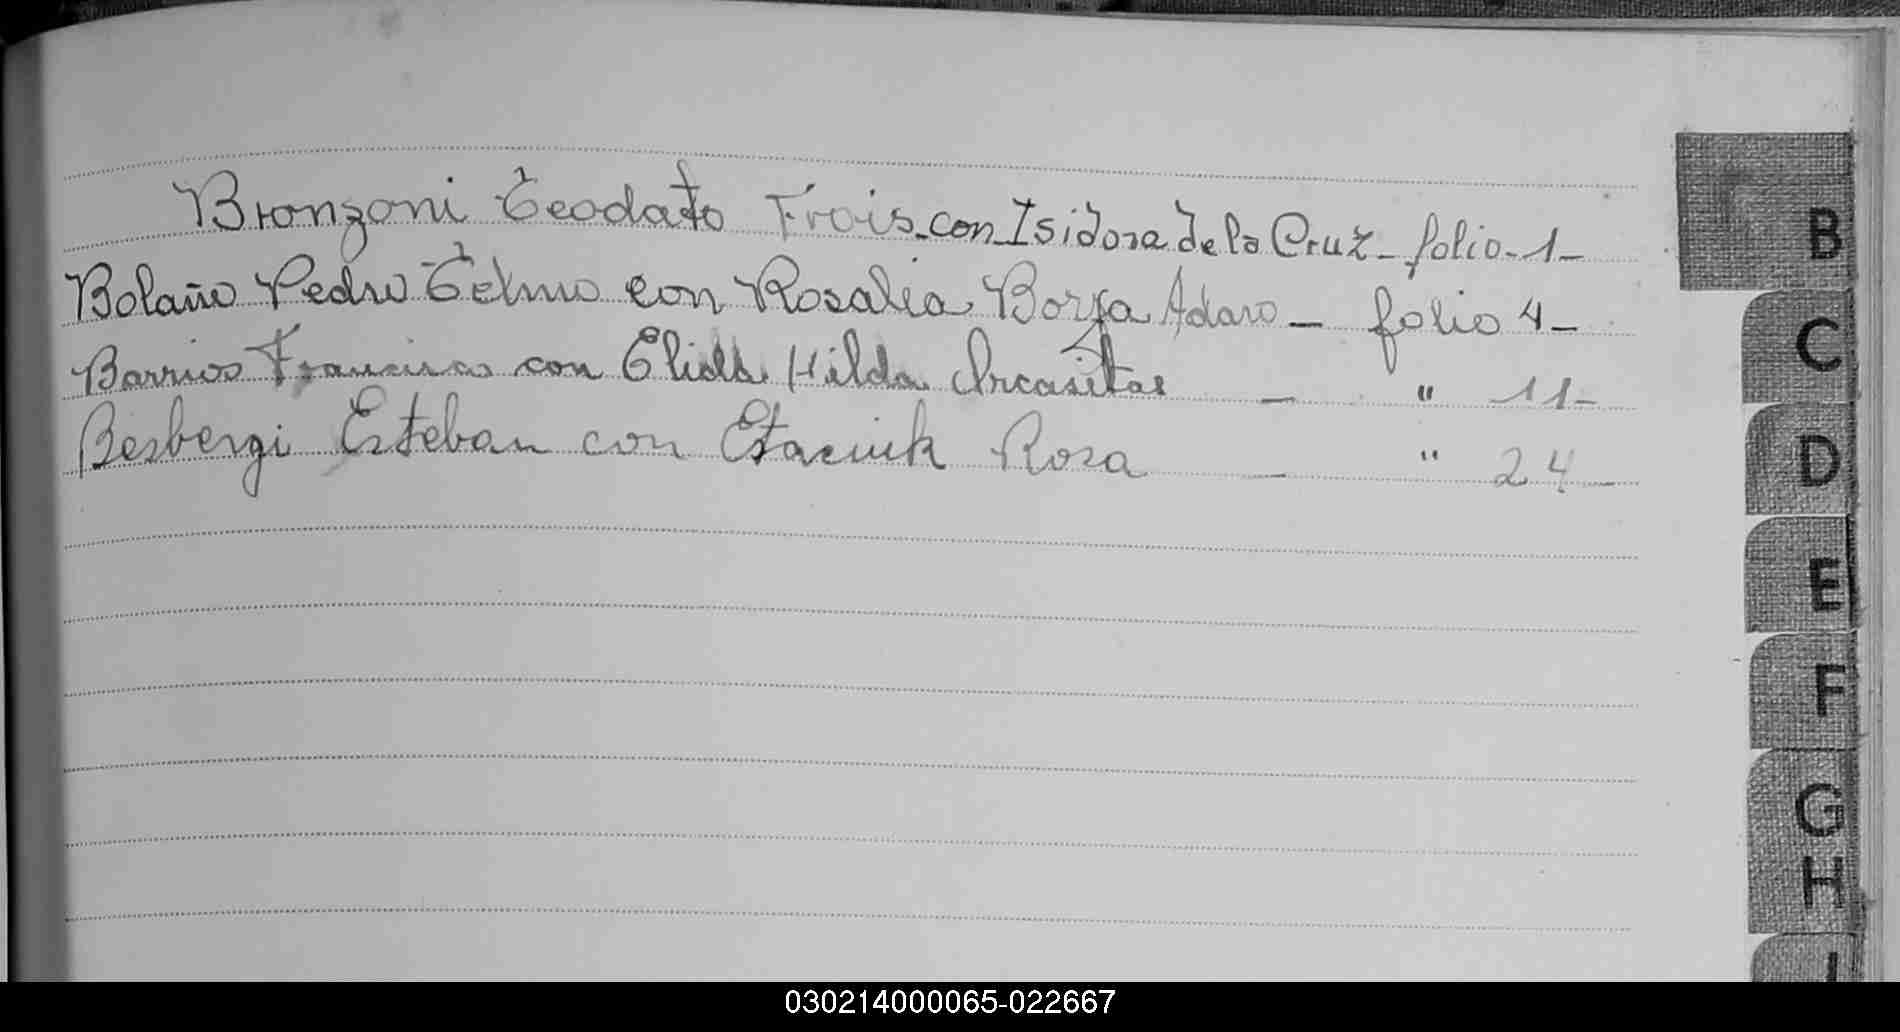 Bronzoni Teodato Frois - con Isidora de la Cruz - folio - 1 -
Bolaño Pedro Telmo con Rosalia Borja Adaro - folio 4 -
Barrios Francisco con Elida Hilda Arcasitas - " 11 -
Besbergi Esteban con Etaciuk Rosa - " 24 -
B
C
D
E
F
G
H
I
030214000065-022667